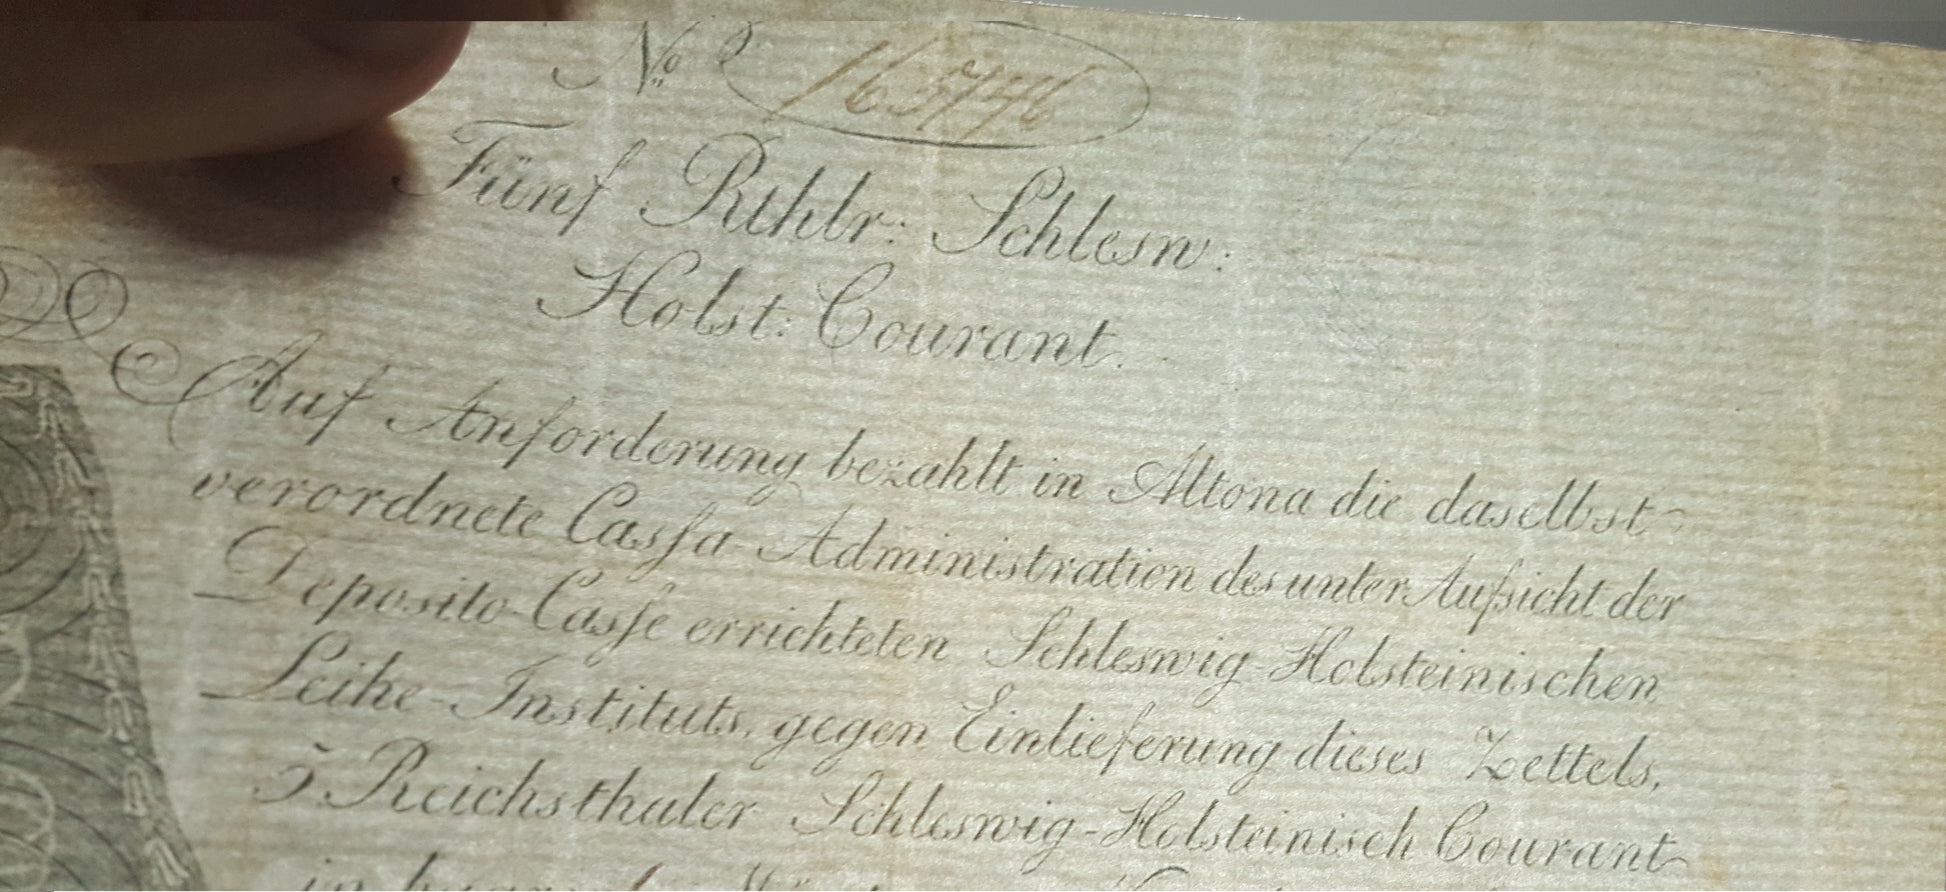 No 165746
Fünf Rthlr: Schlesw:
Holst: Courant.
Auf Anforderung bezahlt in Altona die daselbst
verordnete Cassa-Administration des unter Aufsicht der
Deposito-Casse errichteten Schleswig-Holsteinischen
Leihe-Instituts, gegen Einlieferung dieses Zettels,
5 Reichsthaler Schleswig-Holsteinisch Courant
in